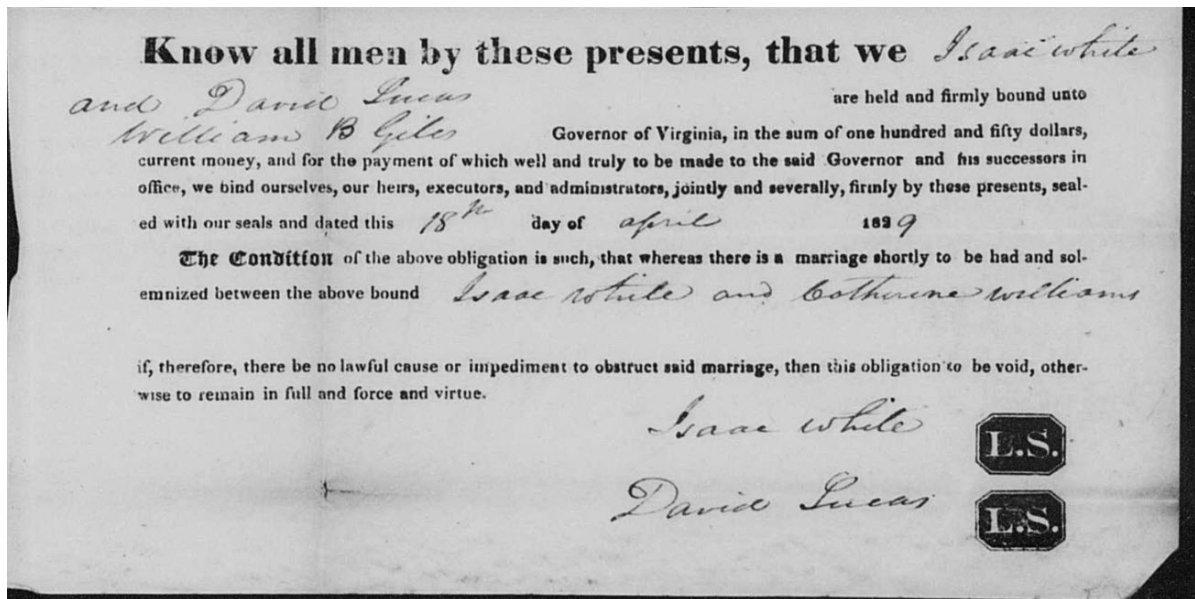 Know all men by these presents, that we Isaac white
and David Lucas are held and firmly bound unto
William B Giles Governor of Virginia, in the sum of one hundred and fifty dollars,
current money, and for the payment of which well and truly to be made to the said Governor and his successors in
office, we bind ourselves, our heirs, executors, and administrators, jointly and severally, firmly by these presents, seal-
ed with our seals and dated this 18th day of april 1829
The Condition of the above obligation is such, that whereas there is a marriage shortly to be had and sol-
emnized between the above bound Isaac White and Catherine williams
if, therefore, there be no lawful cause or impediment to obstruct said marriage, then this obligation to be void, other-
wise to remain in full and force and virtue.
Isaac white
L.S.
David Lucas
L.S.